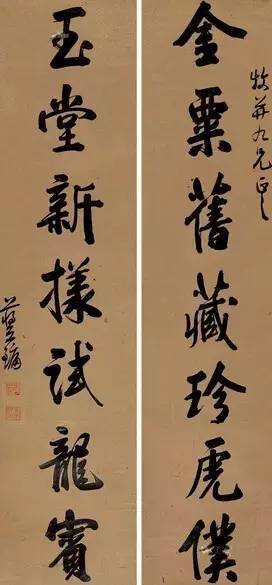 九兄正之
金粟舊藏珍虎僕
玉堂新樣試龍賓
蔣立鏞